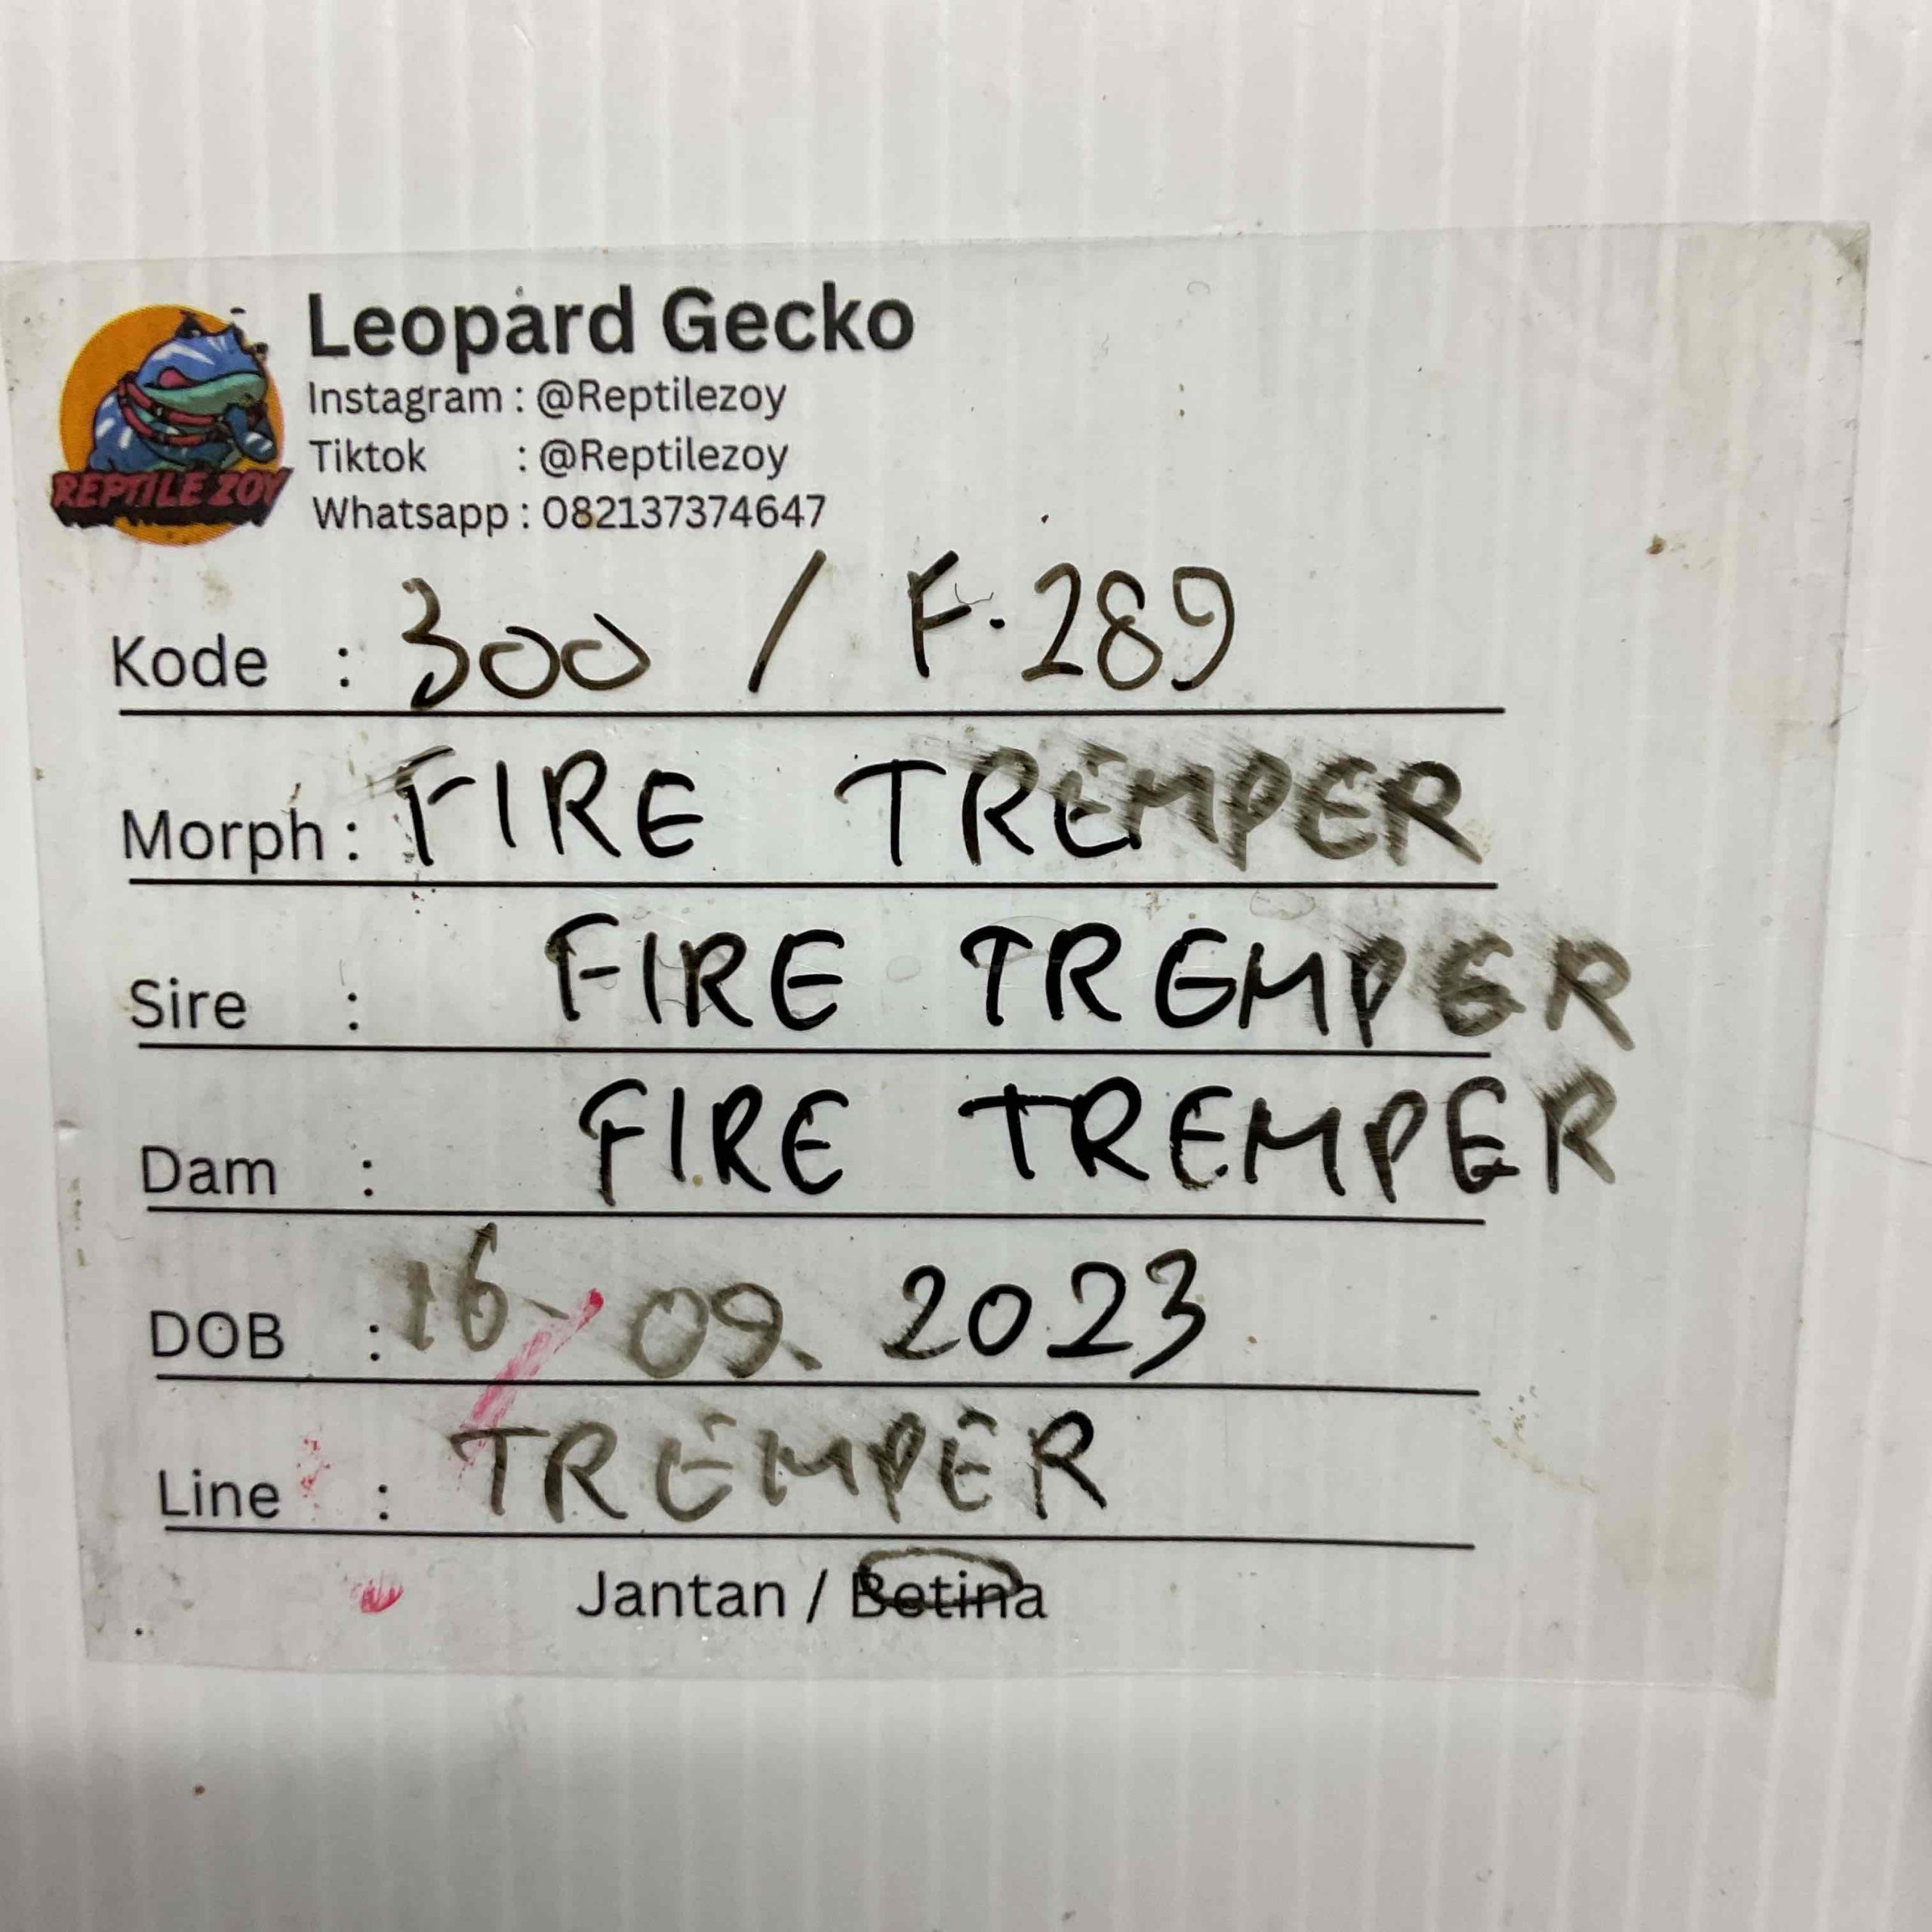 Leopard Gecko
Instagram : @Reptilezoy
Tiktok : @Reptilezoy
Whatsapp : 082137374647
REPTILE ZOY
Kode : 300 / F.289
Morph : FIRE TREMPER
Sire : FIRE TREMPER
Dam : FIRE TREMPER
DOB : 16-09. 2023
Line : TREMPER
Jantan / Betina